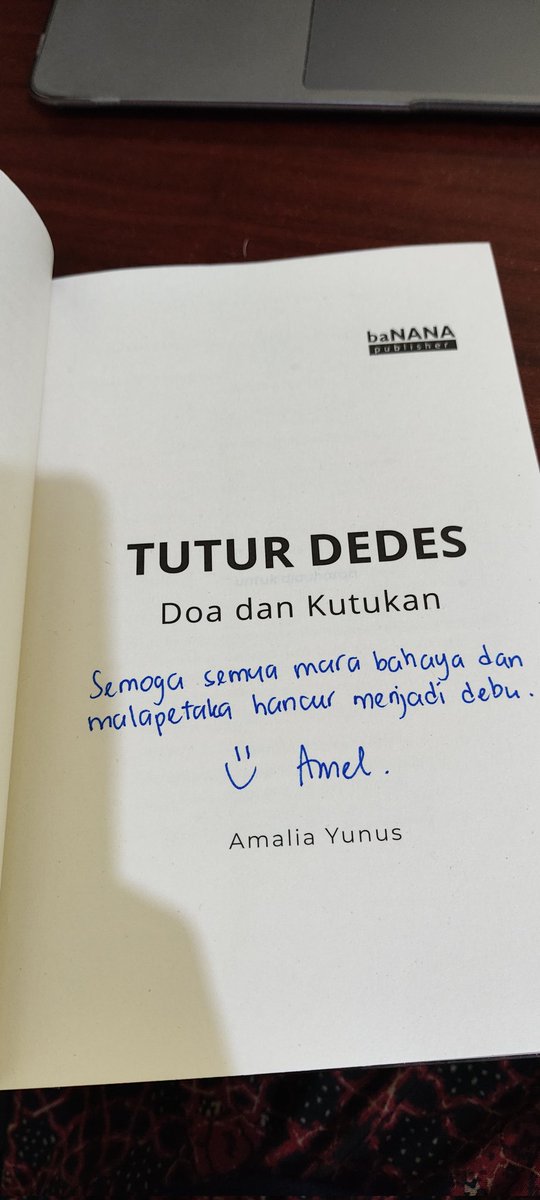 baNANA
publisher
TUTUR DEDES
Doa dan Kutukan
Semoga semua mara bahaya dan
malapetaka hancur menjadi debu.
Amel.
Amalia Yunus